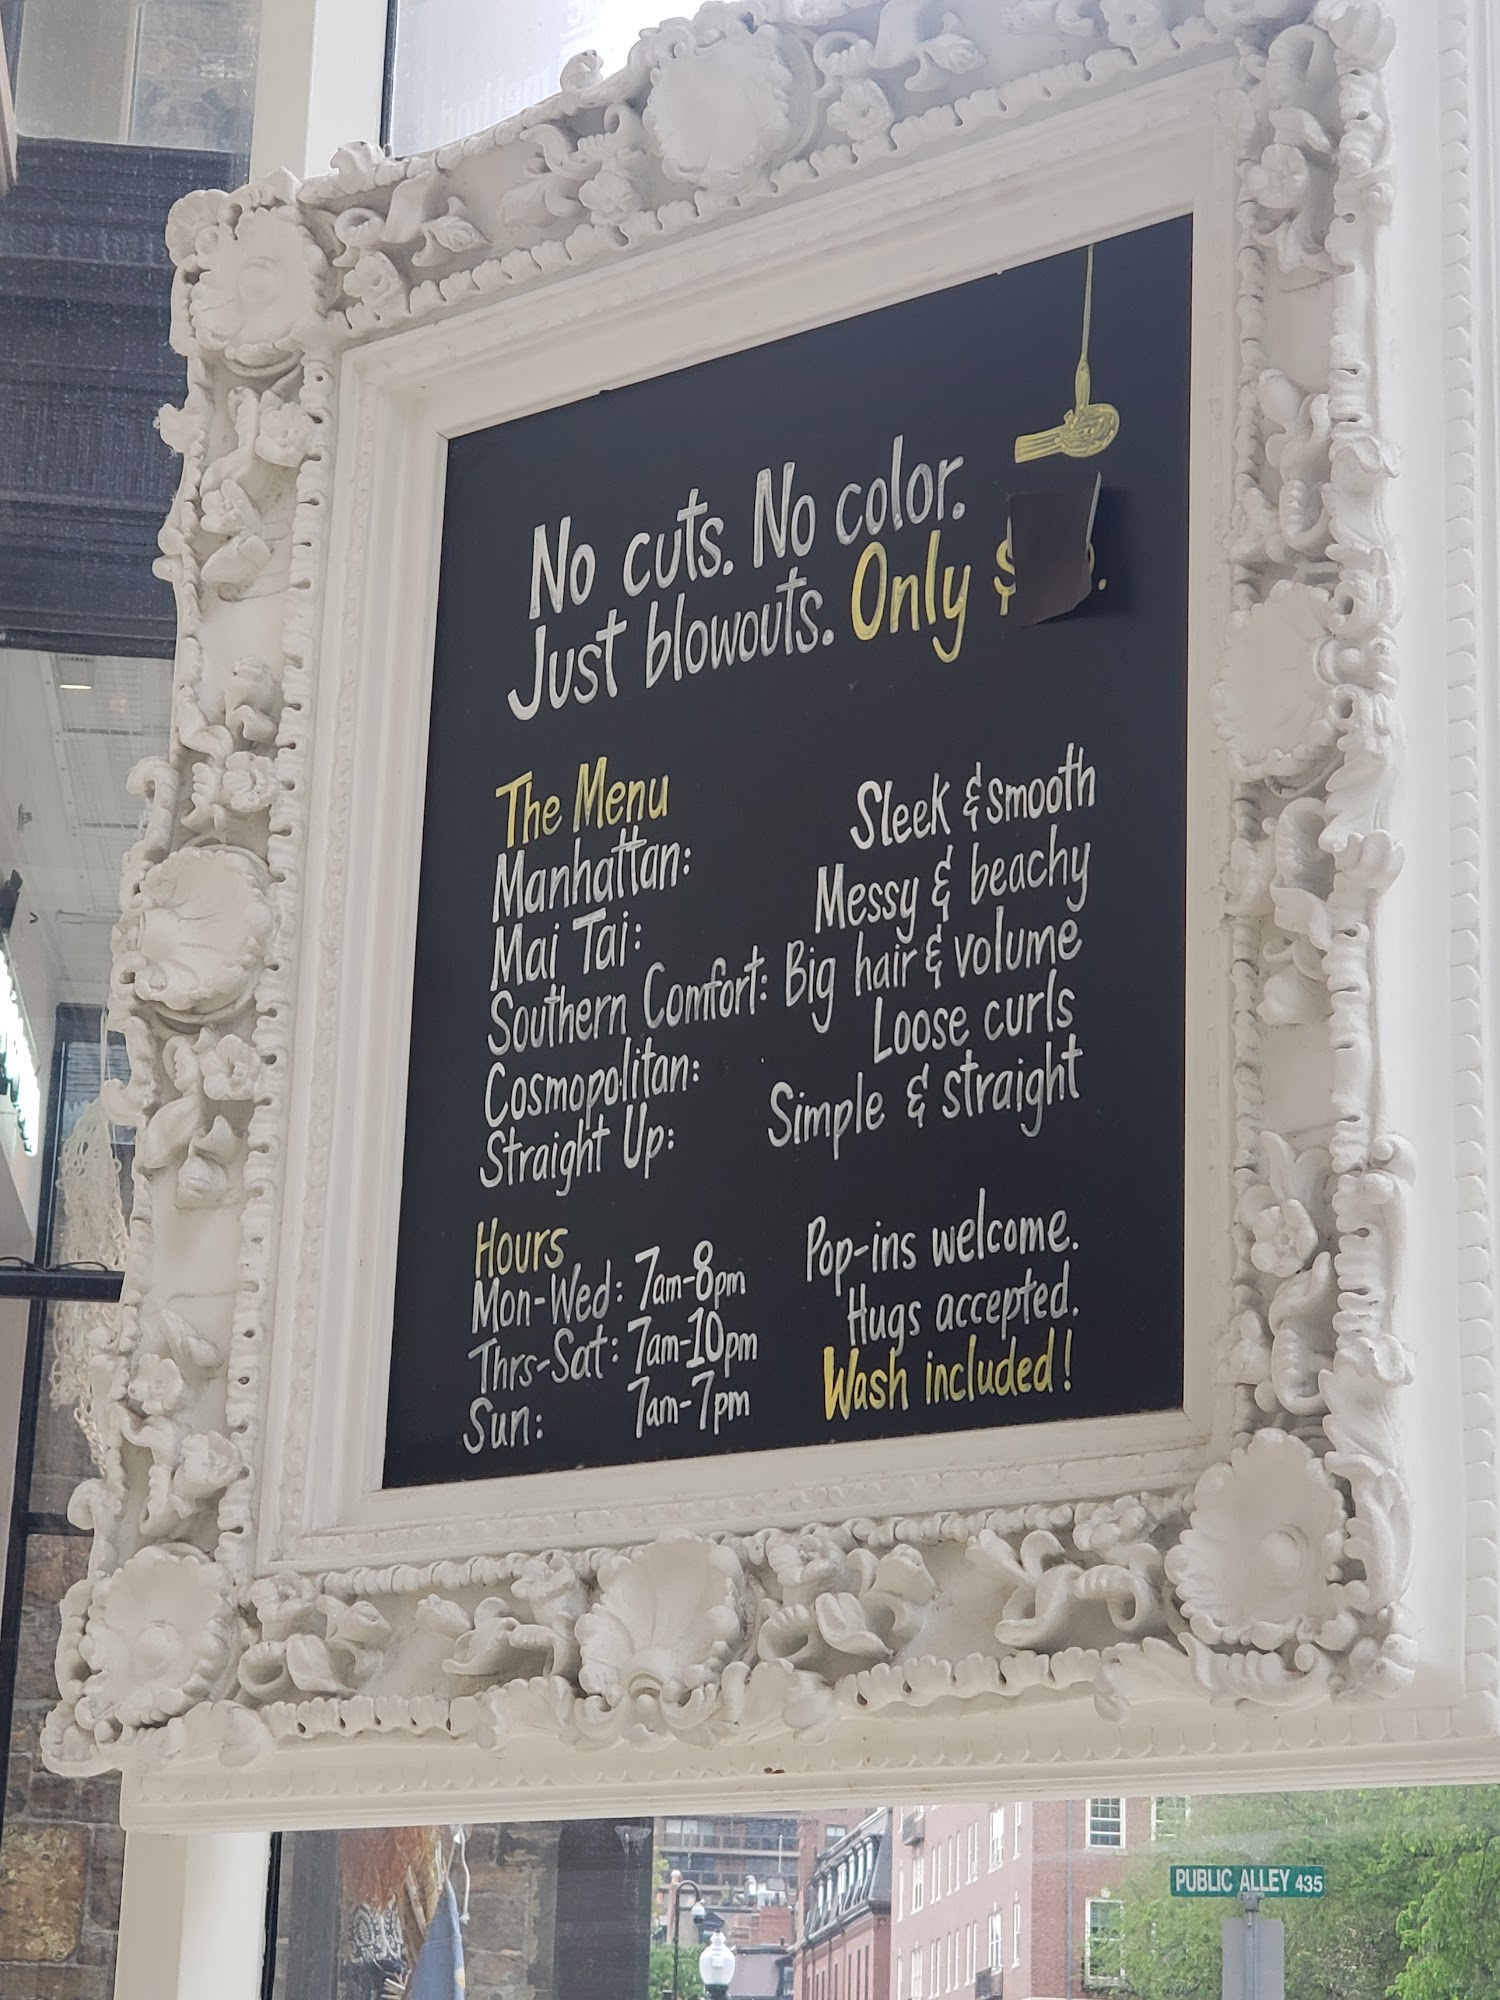 No cuts. No color.
Just blowouts. Only $
The Menu
Manhattan: Sleek & smooth
Mai Tai: Messy & beachy
Southern Comfort: Big hair & volume
Cosmopolitan: Loose curls
Straight Up: Simple & straight
Hours
Mon-Wed: 7am-8pm
Thrs-Sat: 7am-10pm
Sun: 7am-7pm
Pop-ins welcome.
Hugs accepted.
Wash included!
PUBLIC ALLEY 435